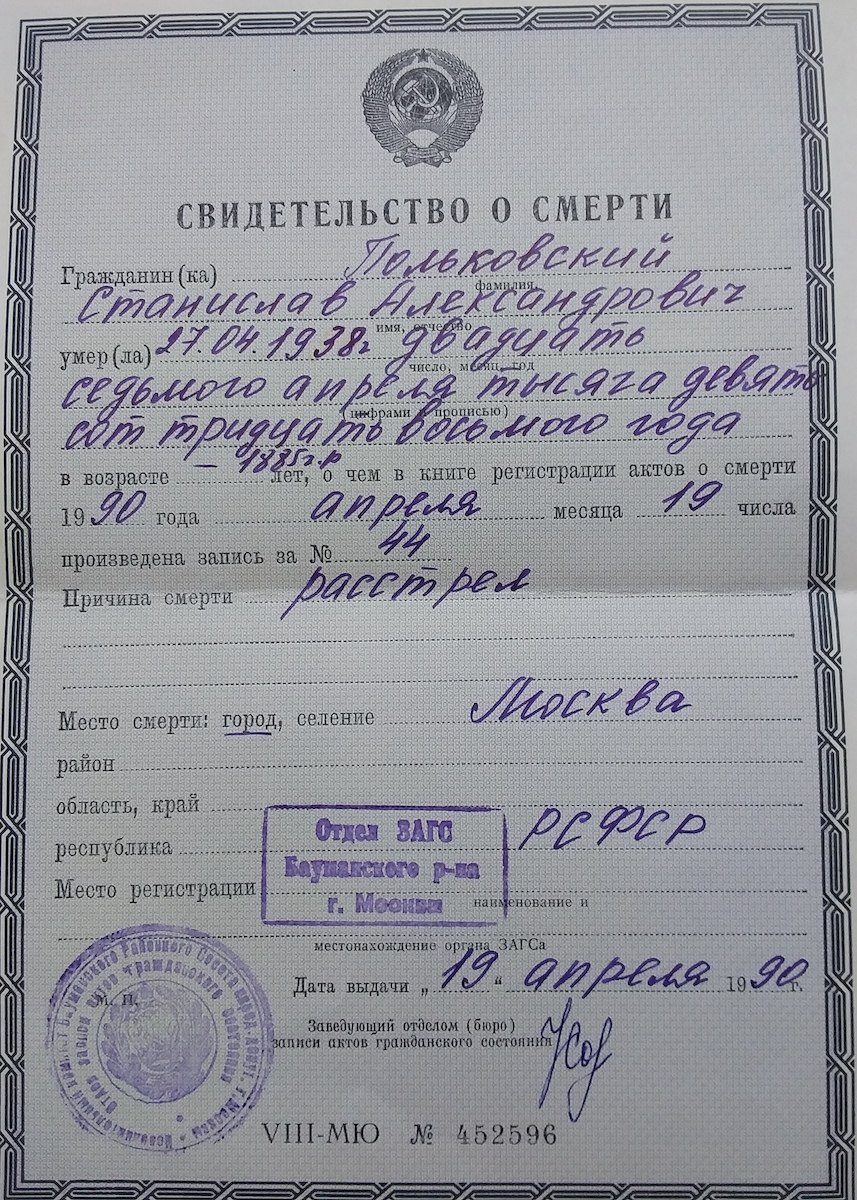 СВИДЕТЕЛЬСТВО О СМЕРТИ
Гражданин(ка) Польковский
фамилия,
Станислав Александрович
имя, отчество
умер(ла) 27.04.1938г двадцать
число, месяц, год
седьмого апреля тысяга девять
(цифрами и прописью)
сот тридцать восьмого года
в возрасте — 1885г.р лет, о чем в книге регистрации актов о смерти
1990 года апреля месяца 19 числа
произведена запись за № 44
Причина смерти расстрел
Место смерти: город, селение Москва
район
область, край
республика РСФСР
Отдел ЗАГС
Бауманского р-на
г. Москвы
Место регистрации
наименование и
местонахождение органа ЗАГСа
Дата выдачи „19“ апреля 1990г.
М. П.
Заведующий отделом (бюро)
записи актов гражданского состояния
VIII-МЮ № 452596